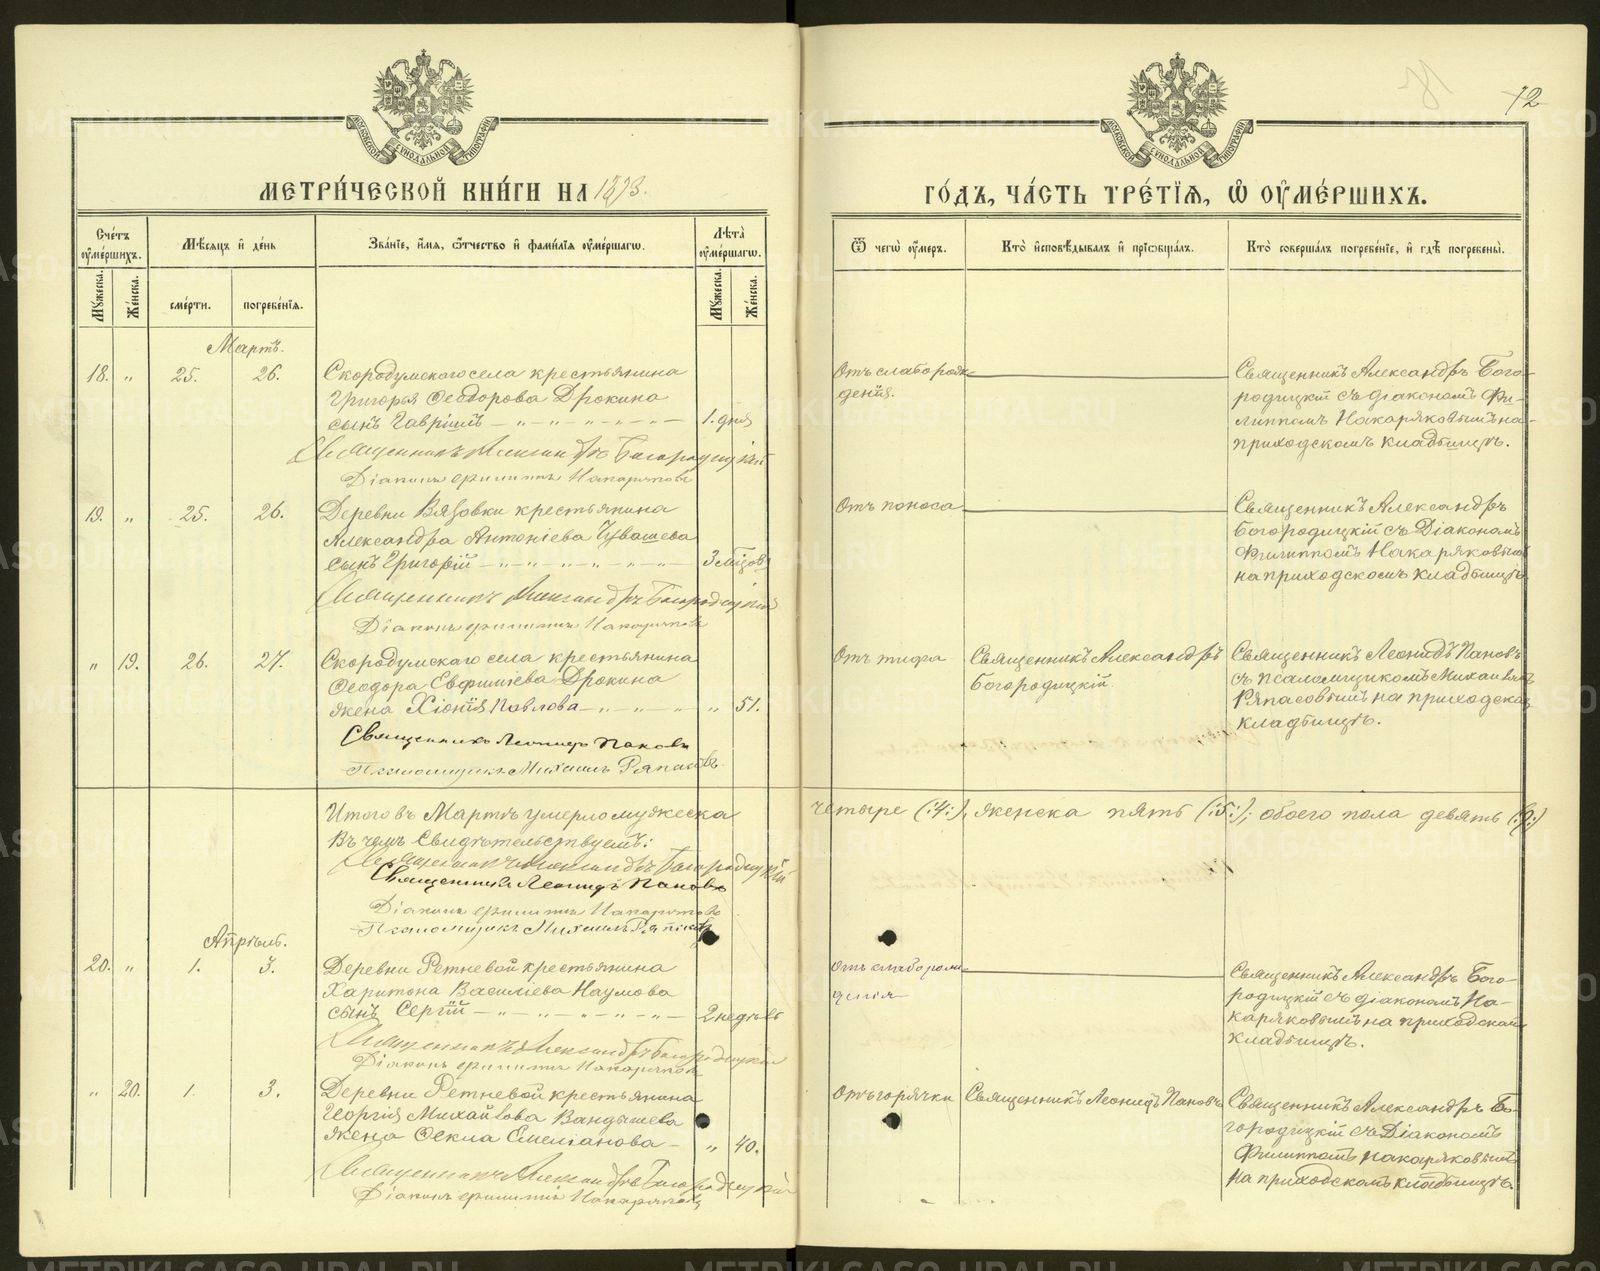 МЕТРИ́ЧЕСКОЙ КНИ́ГИ НА 1893.
Сче́тъ ᲂу҆ме́ршихъ.
Мѣ́сяцъ и҆ де́нь
Зва́нїе, и҆́мя, ѻ҆́тчество и҆ фами́лїя ᲂу҆ме́ршагѡ.
Лѣ́та ᲂу҆ме́ршагѡ.
Мꙋ́жеска.
Же́нска.
сме́рти.
погребе́нїя.
Мꙋ́жеска.
Же́нска.
Мартъ.
18. " 25. 26.
Скородумскаго села крестьянина
Григорья Ѳеодорова Дрокина
сынъ Гавріилъ – „ – „ – „ – „ – 1. дня
Священникъ Александръ Богородицкій
Діаконъ Филиппъ Накаряковъ
19. " 25. 26.
Деревни Вязовки крестьянина
Александра Антоніева Чувашева
сынъ Григорій – „ – „ – „ – „ – 3 мѣцовъ
Священникъ Александръ Богородицкій
Діаконъ Филиппъ Накаряковъ
" 19. 26. 27.
Скородумскаго села крестьянина
Ѳеодора Евфиміева Дрокина
жена Хіонія Павлова – „ – „ – „ – " 51.
Священникъ Леонидъ Пановъ
Псаломщикъ Михаилъ Ряпасовъ
Итого въ Мартѣ умерло мужеска
Въ чемъ Свидѣтельствуемъ:
Священникъ Александръ Богородицкій
Священникъ Леонидъ Пановъ
Діаконъ Филиппъ Накаряковъ
Псаломщикъ Михаилъ Ряпасовъ
Апрѣль.
20. " 1. 3.
Деревни Ретневой крестьянина
Харитона Василіева Наумова
сынъ Сергій – „ – „ – „ – „ – 2 недѣль
Священникъ Александръ Богородицкій
Діаконъ Филиппъ Накаряковъ
" 20. 1. 3.
Деревни Ретневой крестьянина
Георгія Михайлова Вандышева
жена Ѳекла Емеліанова – " 40.
Священникъ Александръ Богородицкій
Діаконъ Филиппъ Накаряковъ
72
ГО́ДЪ, ЧА́СТЬ ТРЕ́ТЇЯ, Ѡ҆ ОУ҆МЕ́РШИХЪ.
Ѿ чегѡ̀ ᲂу҆́меръ.
Кто̀ и҆сповѣ́дывалъ и҆ прїѡбща́лъ.
Кто̀ соверша́лъ погребе́нїе, и҆ гдѣ̀ погребены̀.
Отъ слаборож-
денія.
Священникъ Александръ Бого-
родицкій съ діакономъ Фи-
липпомъ Накаряковымъ на
приходскомъ кладбищѣ.
Отъ поноса
Священникъ Александръ
Богородицкій съ Діакономъ
Филиппомъ Накаряковымъ
на приходскомъ кладбищѣ.
Отъ тифа
Священникъ Александръ
Богородицкій.
Священникъ Леонидъ Пановъ
съ псаломщикомъ Михаиломъ
Ряпасовымъ на приходскомъ
кладбищѣ.
четыре (:4:), женска пять (:5:); обоего пола девять (:9:)
Отъ слаборож-
денія
Священникъ Александръ Бого-
родицкій съ діакономъ На-
каряковымъ на приходскомъ
кладбищѣ.
Отъ горячки
Священникъ Леонидъ Пановъ
Священникъ Александръ Бо-
городицкій съ Діакономъ
Филиппомъ Накаряковымъ
на приходскомъ кладбищѣ.